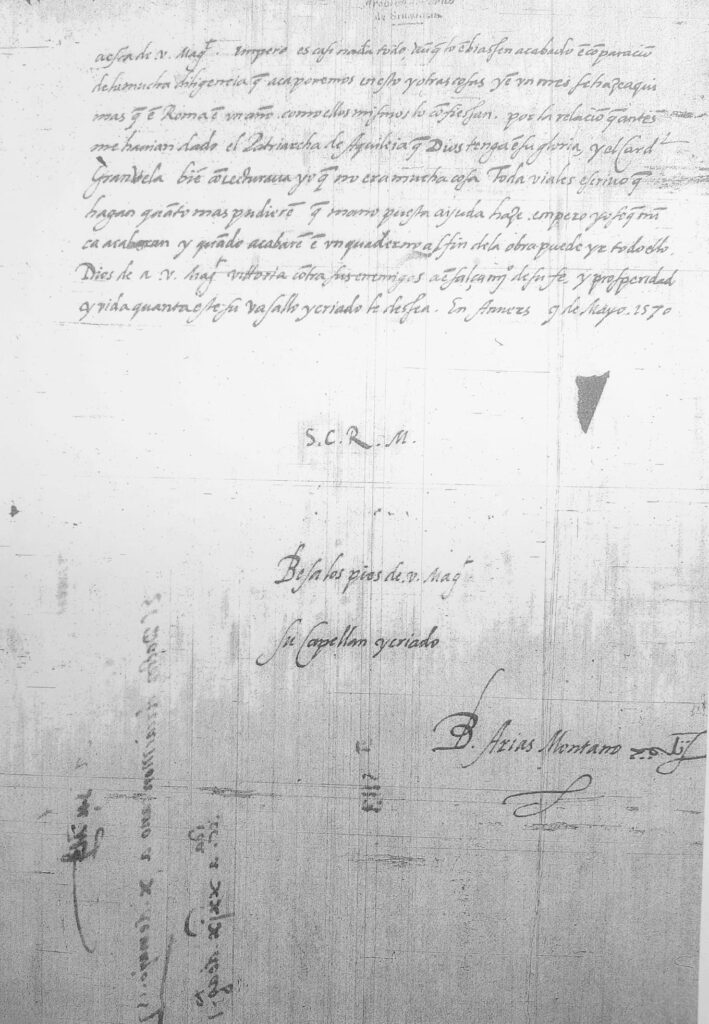 de Simancas
acerca de v. Mag.t Empero es casi nada todo, aunq̃ lo ẽbiassen acabado ẽ cõparaciõ
de la mucha diligencia q̃ aca ponemos en esto y otras cosas y ẽ vn mes se haze aqui
mas q̃ ẽ Roma ẽ vn año. como ellos mismos lo cõfiessan. por la relaciõ q̃ antes
me hauian dado el Patriarcha de Aquileia q̃ Dios tenga ẽ su gloria, y el Card.l
Granvela biẽ cõiecturaua yo q̃ no era mucha cosa Toda via les escriuo q̃
hagan quãto mas pudierẽ q̃ mano puesta ayuda haze. empero yo se q̃ nũ
ca acabaran y quãdo acabarẽ ẽ vn quaderno a ffin de la obra puede yr todo ello.
Dios de a .v. Mag.t vittoria cõtra sus enemigos a ẽsalçamj.o de su fe, y prosperidad
y vida quanta este su vasallo y criado le dessea. En Anvers 9 de Mayo. 1570
S. C. R. M.
Besa los pies de .v. Mag.t
su Capellan y criado
B. Arias Montano